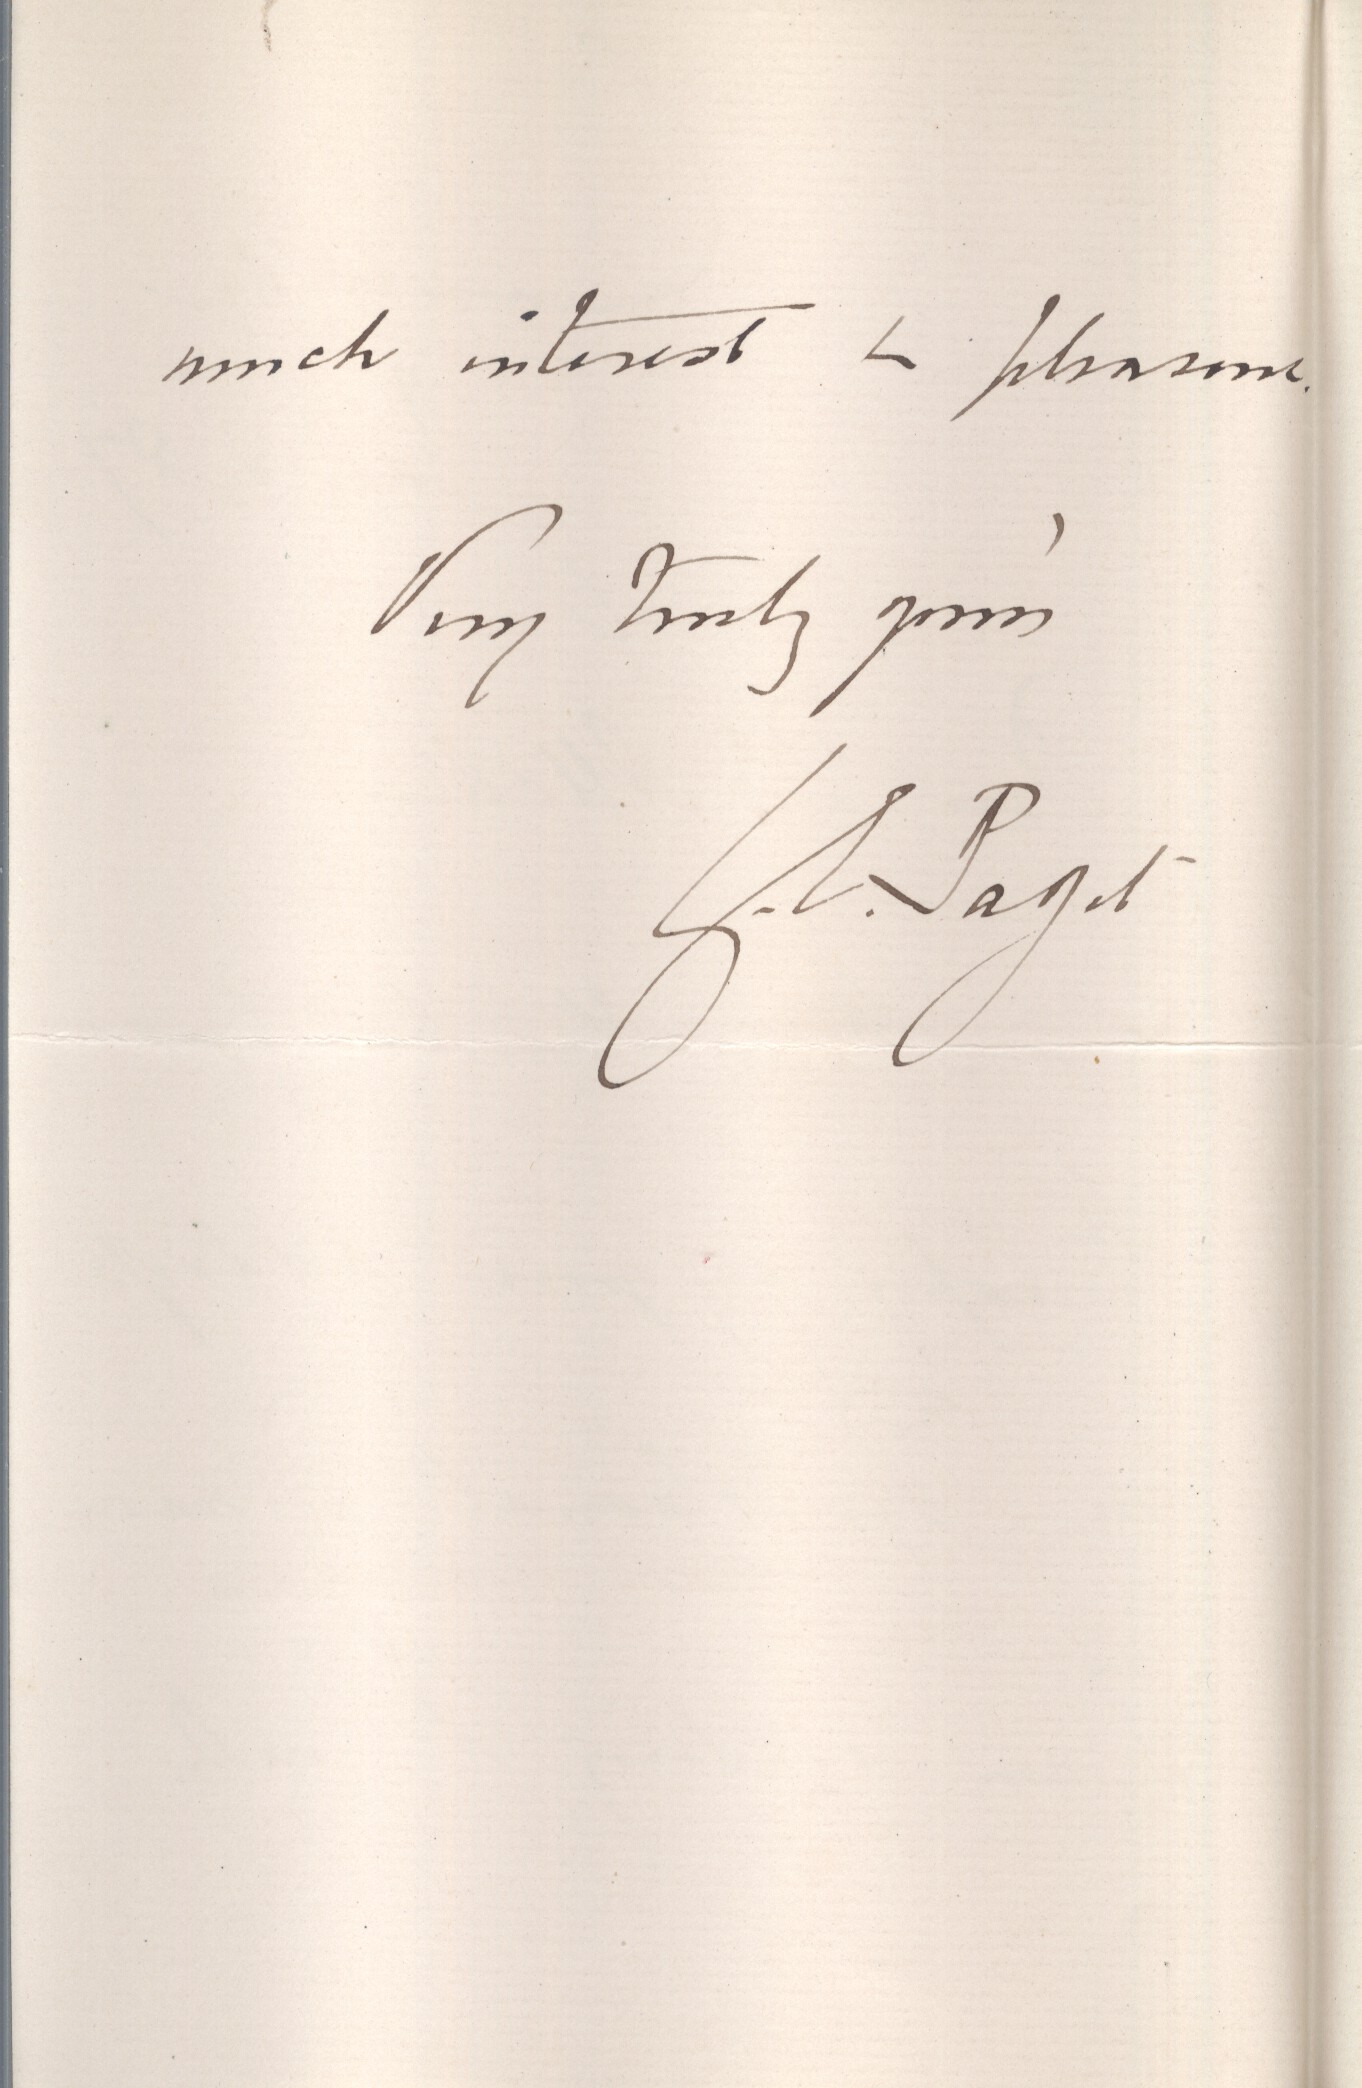 much interest & pleasure.
Very truly yours
G. E. Paget